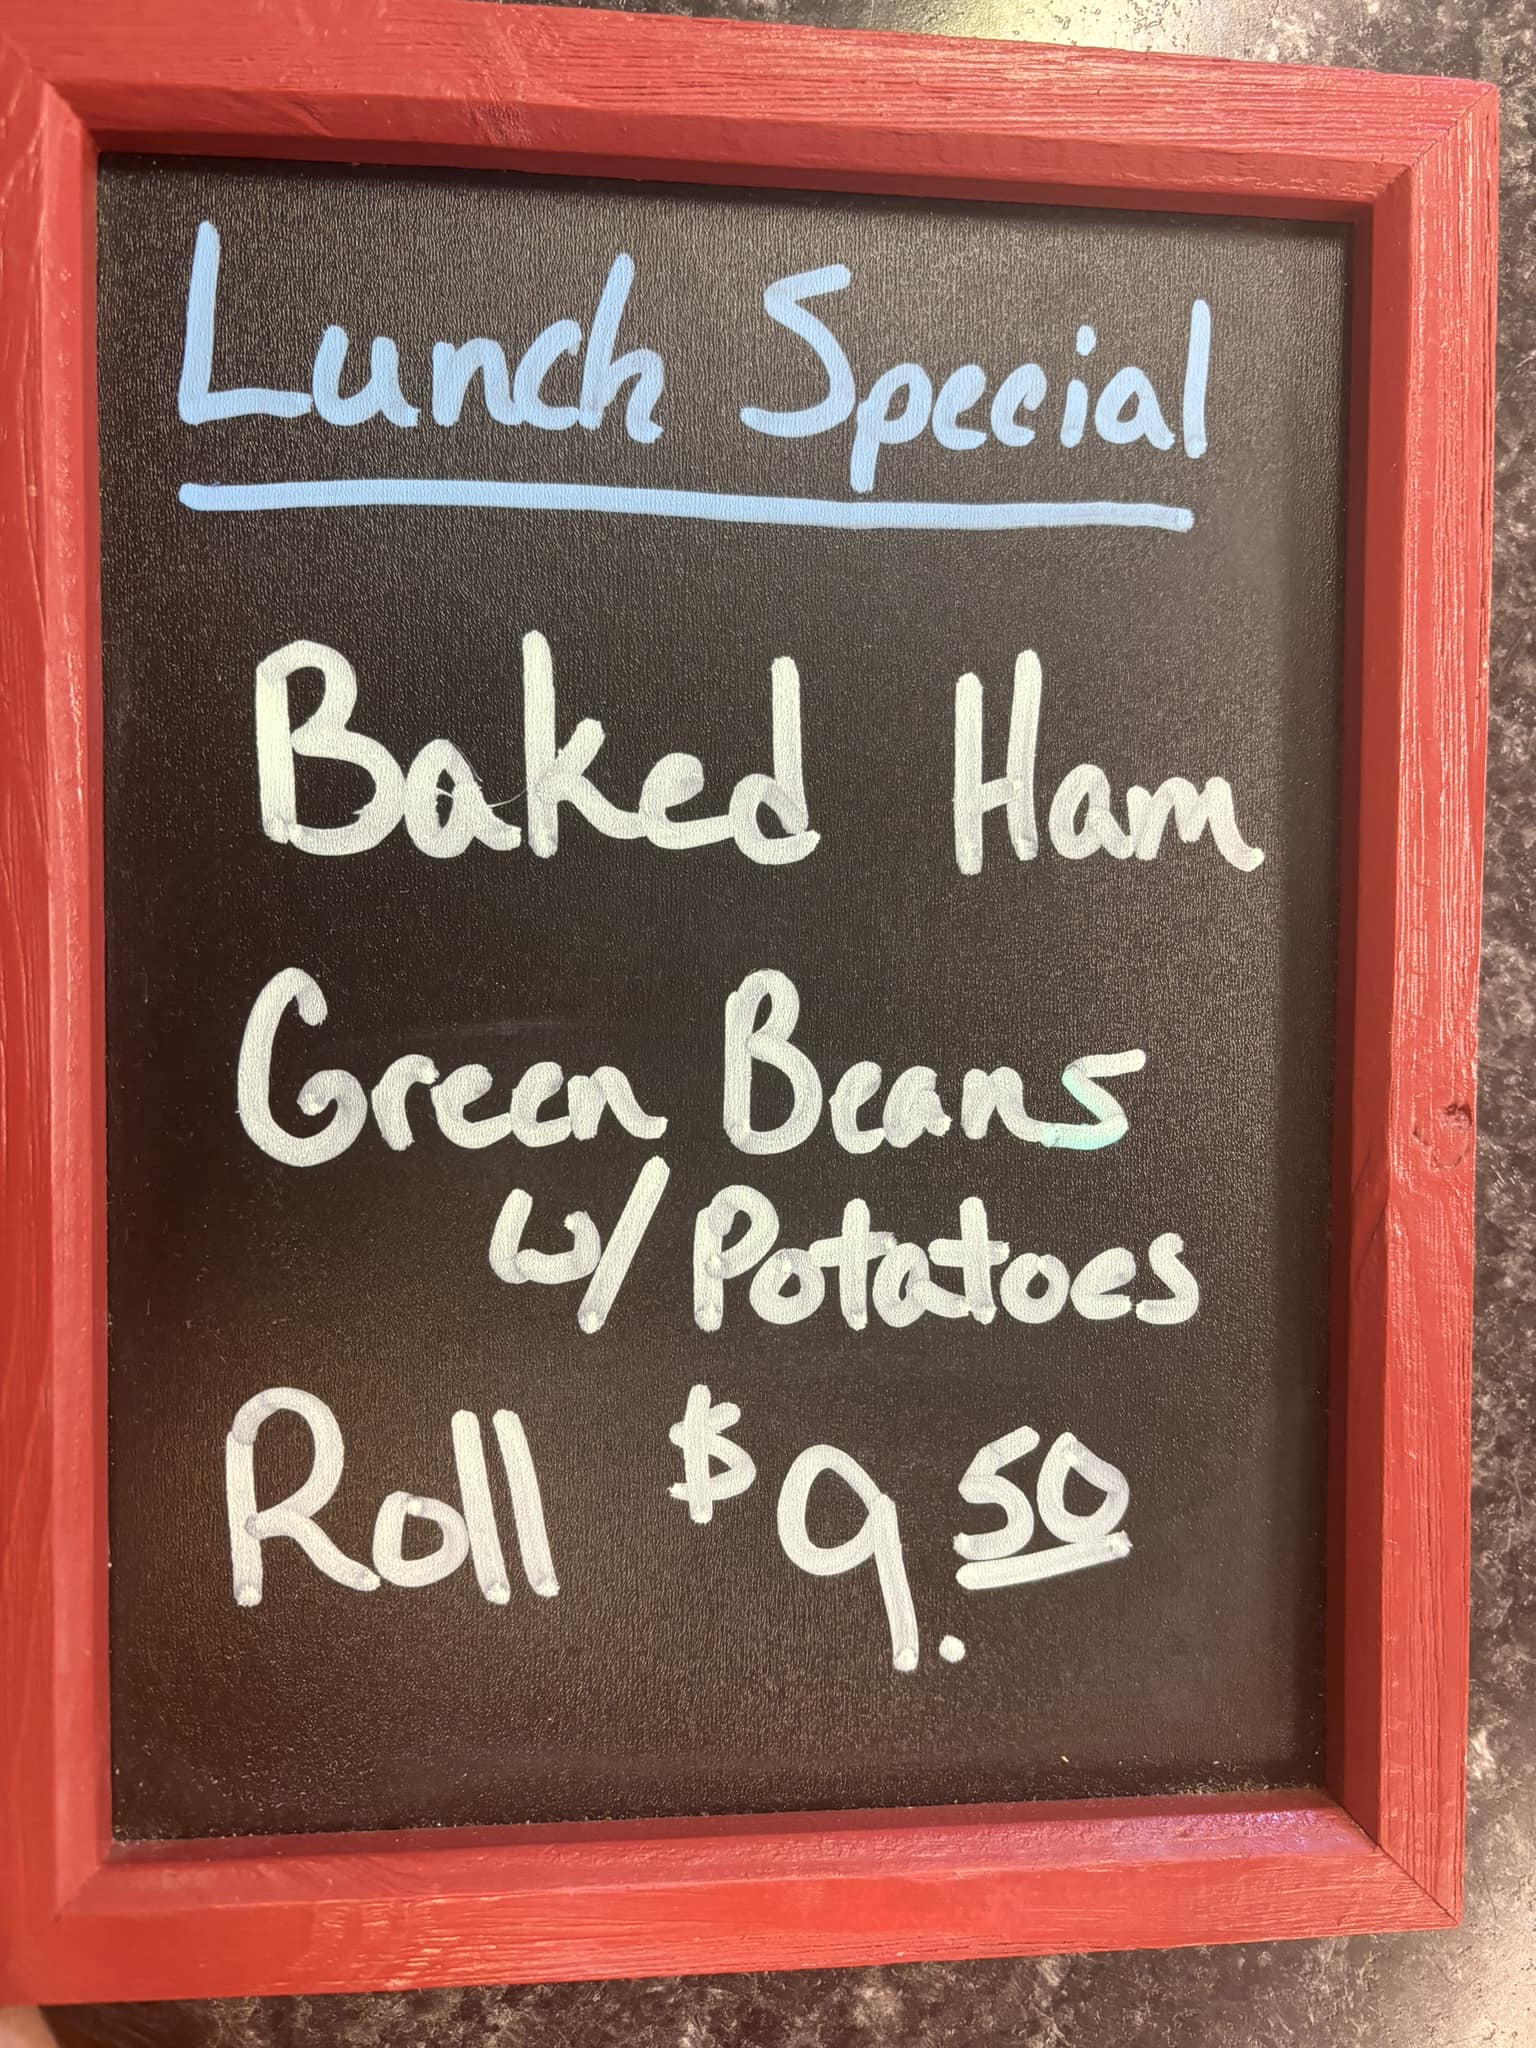 Lunch Special
Baked Ham
Green Beans
w/ Potatoes
Roll $9.50